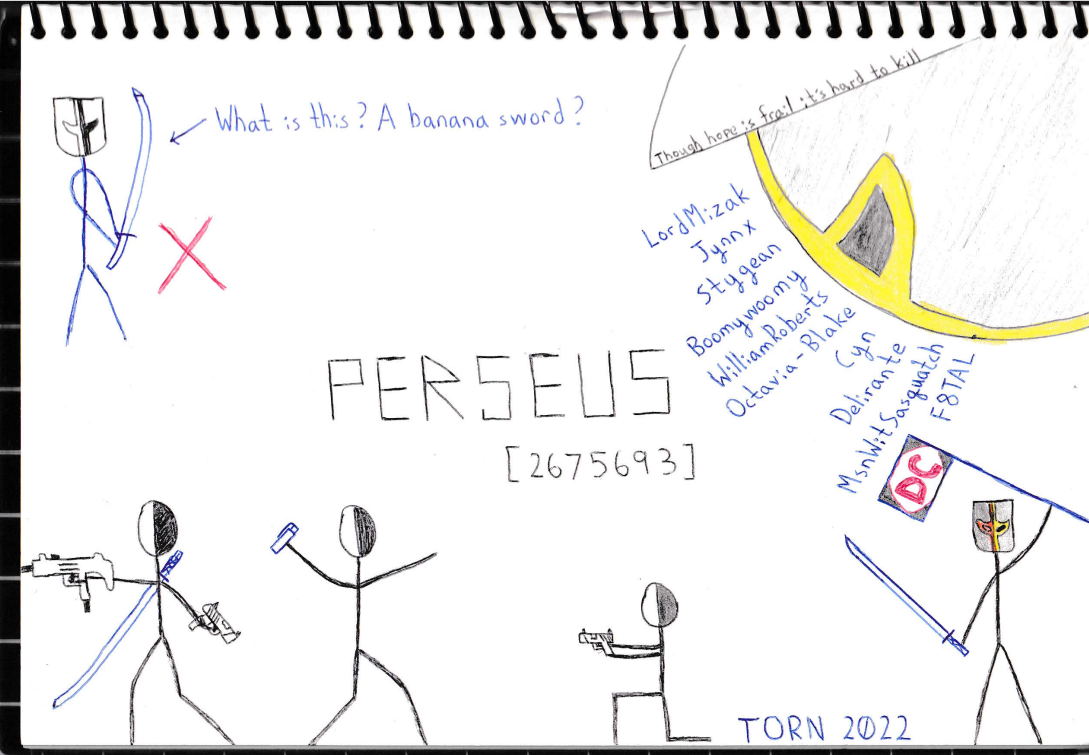 What is this? A banana sword?
Though hope is frail it's hard to kill
LordMizak
Jynnx
Stygean
Boomywoomy
WilliamRoberts
Octavia-Blake
Cyn
Delirante
MsnWitSasquatch
F8TAL
PERSEUS
[2675693]
DC
TORN 2022